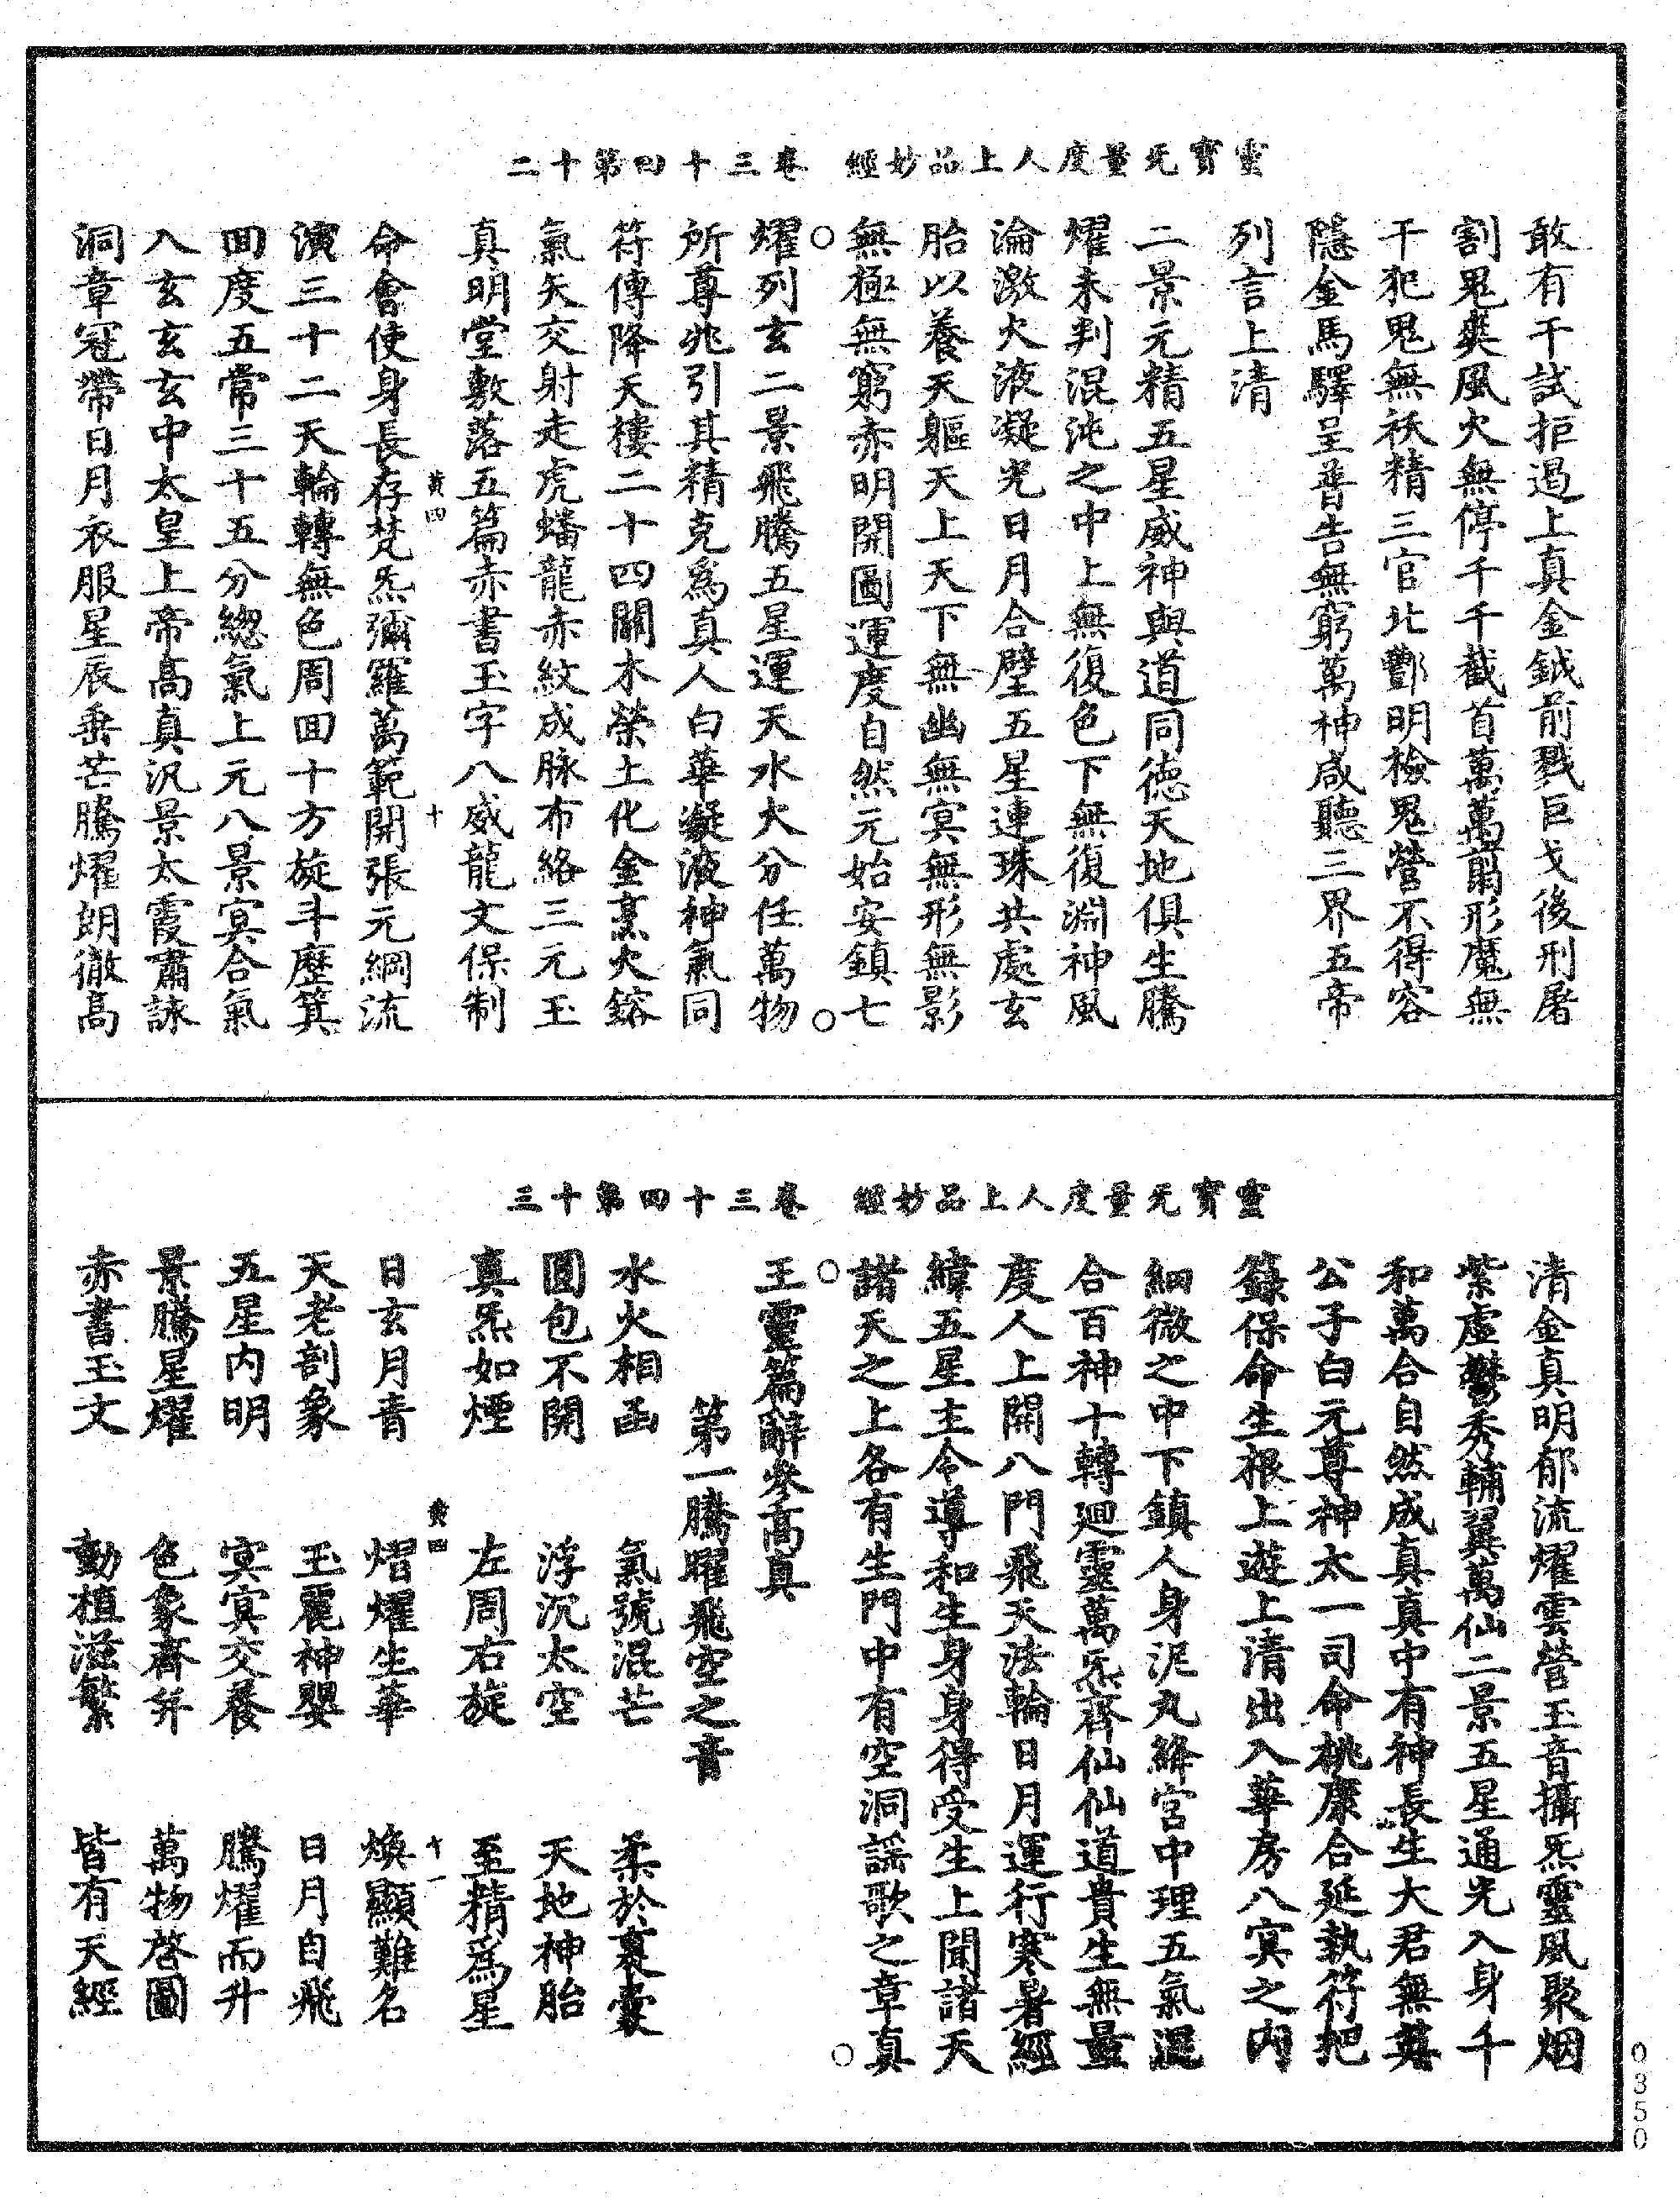 靈寶无量度人上品妙經　卷三十四第十二
敢有干試拒過上真金鉞前戮巨戈後刑屠
割鬼爽風火無停千千截首萬萬翦形魔無
干犯鬼無祅精三官北酆明檢鬼營不得容
隱金馬驛呈普告無窮萬神咸聽三界五帝
列言上清
二景元精五星威神與道同德天地俱生騰
燿未判混沌之中上無復色下無復淵神風
淪激火液凝光日月合璧五星連珠共處玄
胎以養天軀天上天下無幽無冥無形無影
無極無窮赤明開圖運度自然元始安鎮七
燿列玄二景飛騰五星運天水火分任萬物
所尊兆引其精克爲真人白華凝液神氣同
符傳降天樓二十四關木榮土化金烹火鎔
氣矢交射走虎蟠龍赤紋成脉布絡三元玉
真明堂敷落五篇赤書玉字八威龍文保制
黃四　十
命會使身長存梵炁彌羅萬範開張元綱流
演三十二天輪轉無色周回十方旋斗歷箕
回度五常三十五分緫氣上元八景冥合氣
入玄玄玄中太皇上帝高真汎景太霞肅詠
洞章冠帶日月衣服星辰垂芒騰燿朗徹高
靈寶无量度人上品妙經　卷三十四第十三
清金真明郁流燿雲營玉音攝炁靈風聚烟
紫虛鬱秀輔翼萬仙二景五星通光入身千
和萬合自然成真真中有神長生大君無英
公子白元尊神太一司命桃康合延執符把
籙保命生根上遊上清出入華房八冥之内
細微之中下鎮人身泥丸絳宮中理五氣混
合百神十轉廻靈萬炁齊仙仙道貴生無量
度人上開八門飛天法輪日月運行寒暑經
緯五星主令導和生身身得受生上聞諸天
諸天之上各有生門中有空洞謠歌之章真
王靈篇辭參高真
第一騰曜飛空之音
水火相函　氣號混芒　柔於裹囊
圓包不開　浮沉太空　天地神胎
真炁如煙　左周右旋　至精爲星
黃四　十一
日玄月青　熠燿生華　煥顯難名
天老剖象　玉麗神嬰　日月自飛
五星内明　冥冥交養　騰燿而升
景騰星燿　色象齊并　萬物啓圖
赤書玉文　動植滋繁　皆有天經
0350